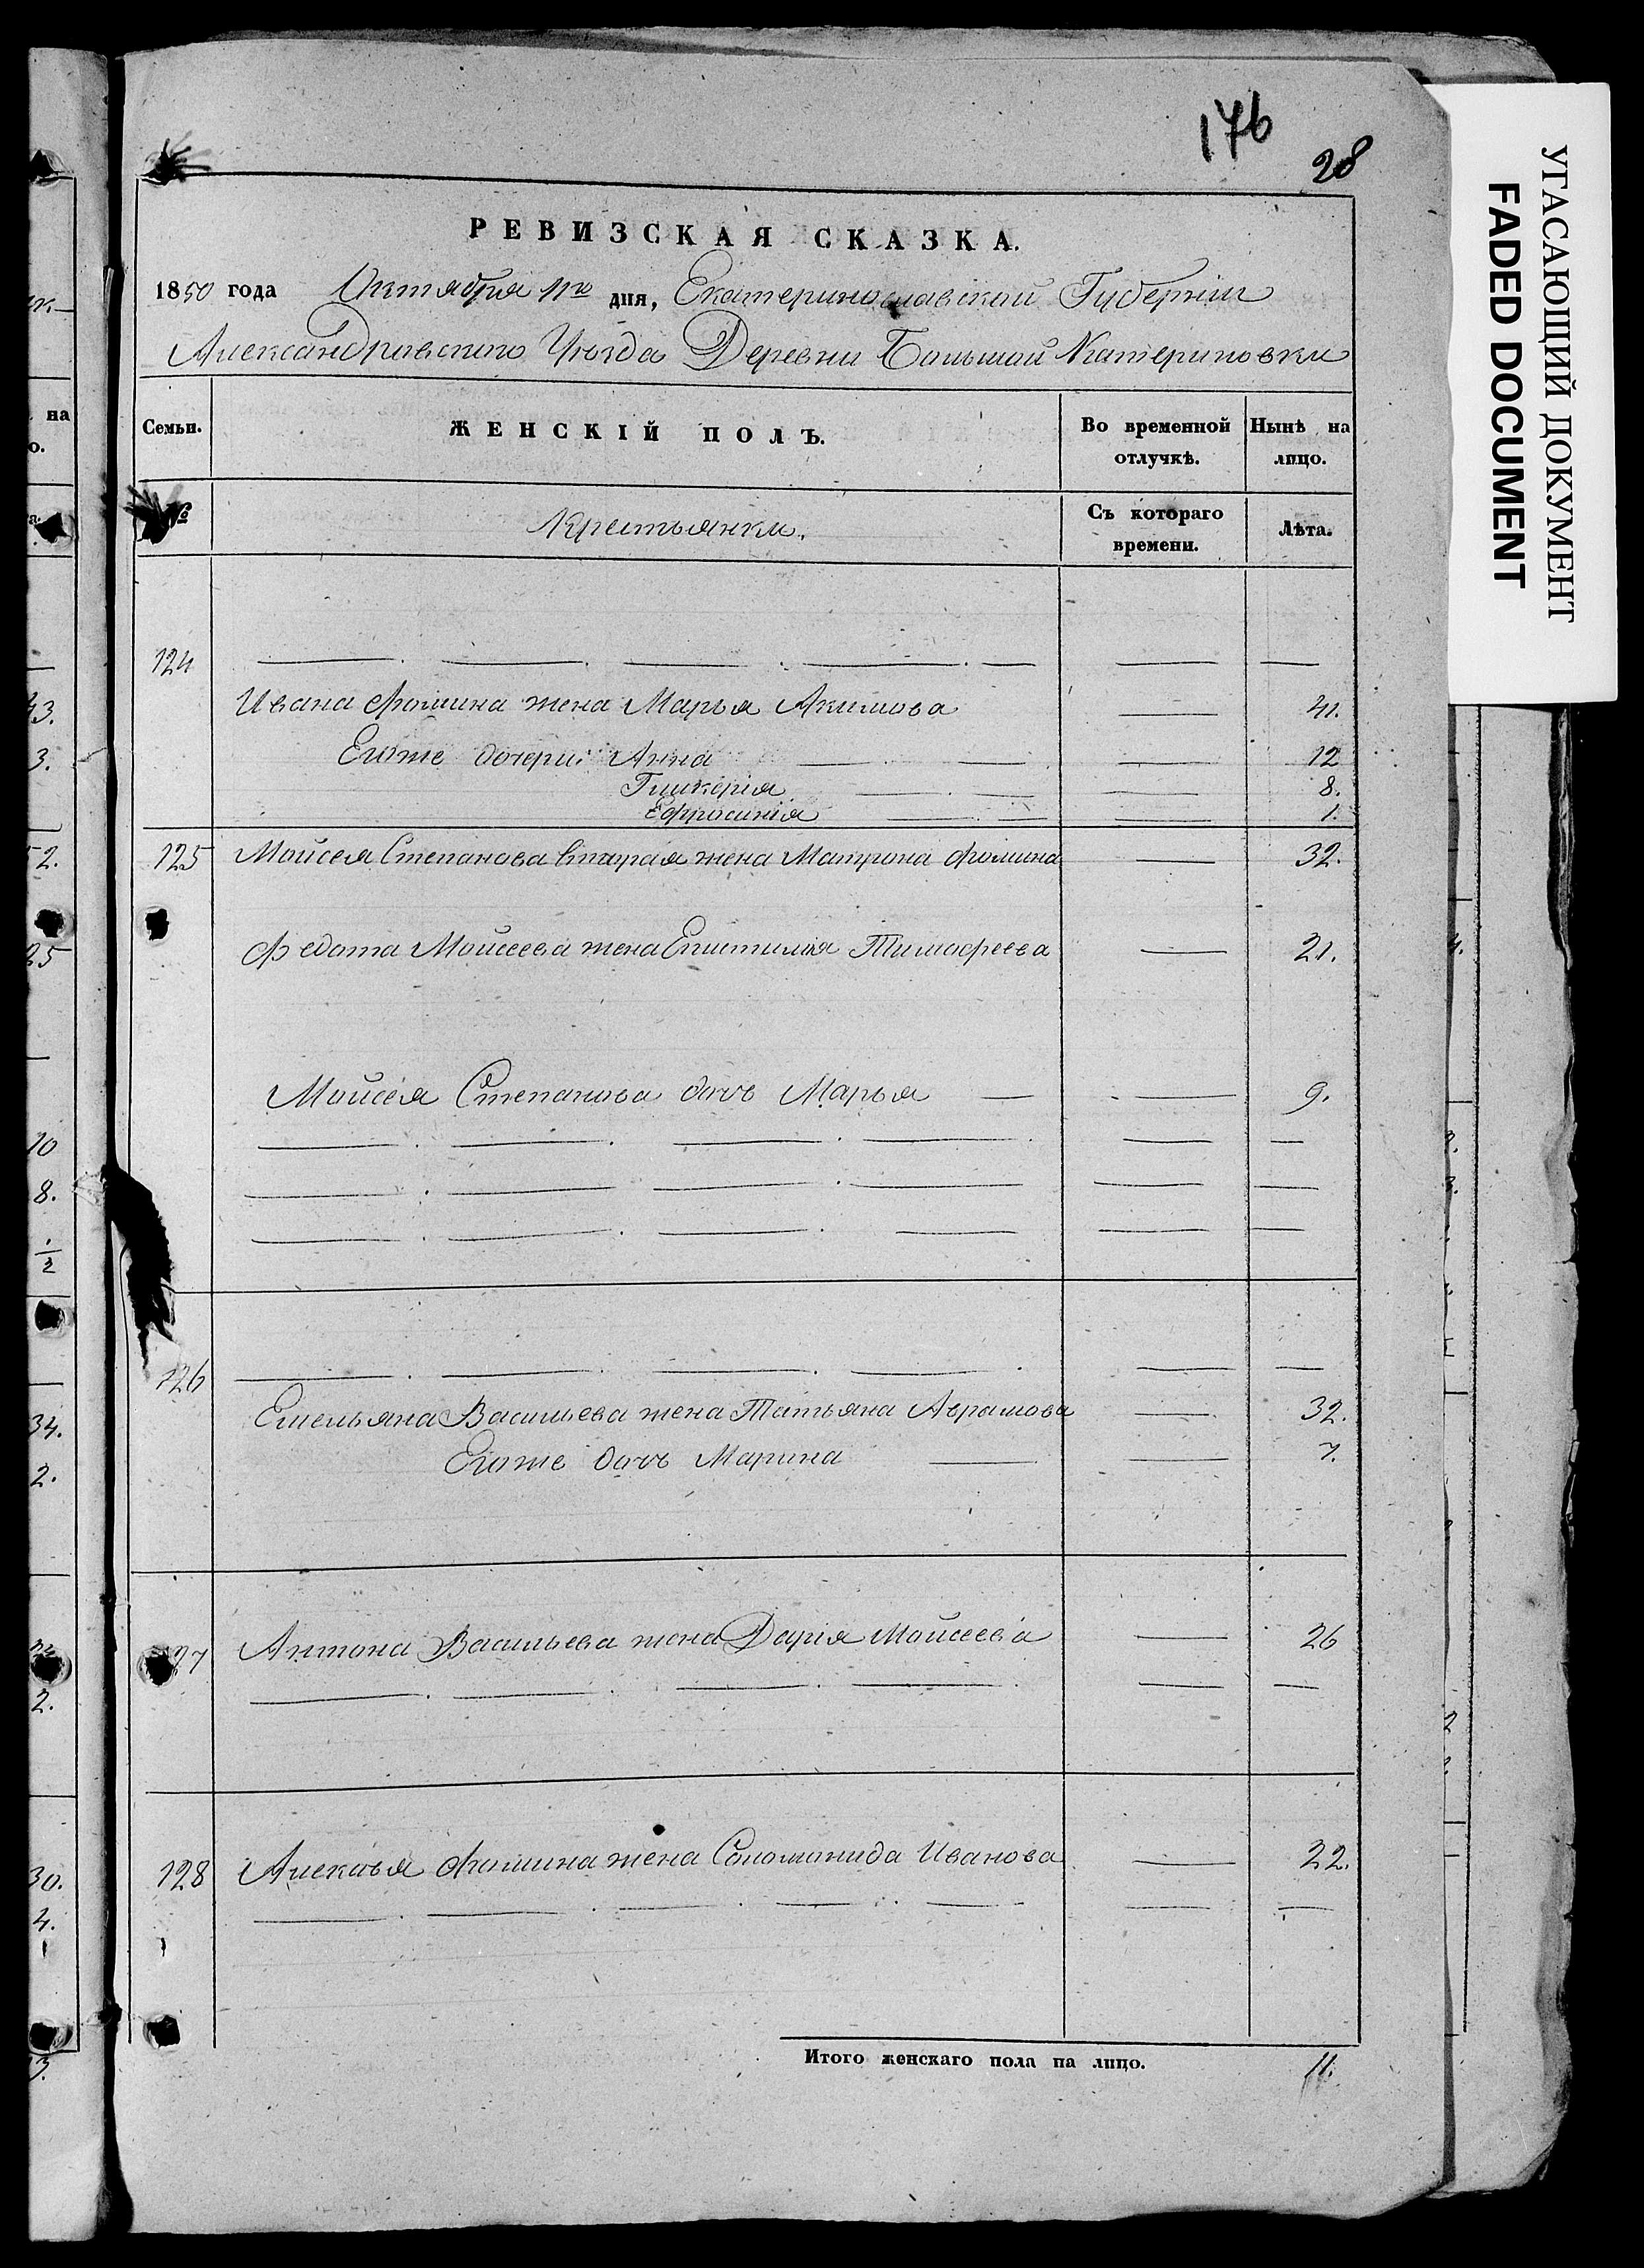 176
28
УГАСАЮЩИЙ ДОКУМЕНТ
FADED DOCUMENT
РЕВИЗСКАЯ СКАЗКА.
1850 года Октября 11го дня, Екатеринославской Губерніи
Александровского Уезда Деревни Большой Катериновки
Семьи. ЖЕНСКІЙ ПОЛЪ. Во временной отлучкѣ. Нынѣ на лицо.
№ Крестьянки. Съ котораго времени. Лѣта.
124
Ивана Фомина жена Марья Акимова 41.
Егоже дочери: Анна 12
Гликерія 8.
Ефросинія 1.
125 Мойсея Степанова вторая жена Матрона Фомина 32.
Федота Мойсеева жена Епистимия Тимофеева 21.
Мойсея Степанова дочь Марья 9.
126
Емельяна Васильева жена Татьяна Аврамова 32.
Егоже дочь Марина 7.
127 Антона Васильева жена Дарія Мойсеева 26
128 Алексѣя Фомина жена Соломонида Иванова 22.
Итого женскаго пола на лицо. 11.